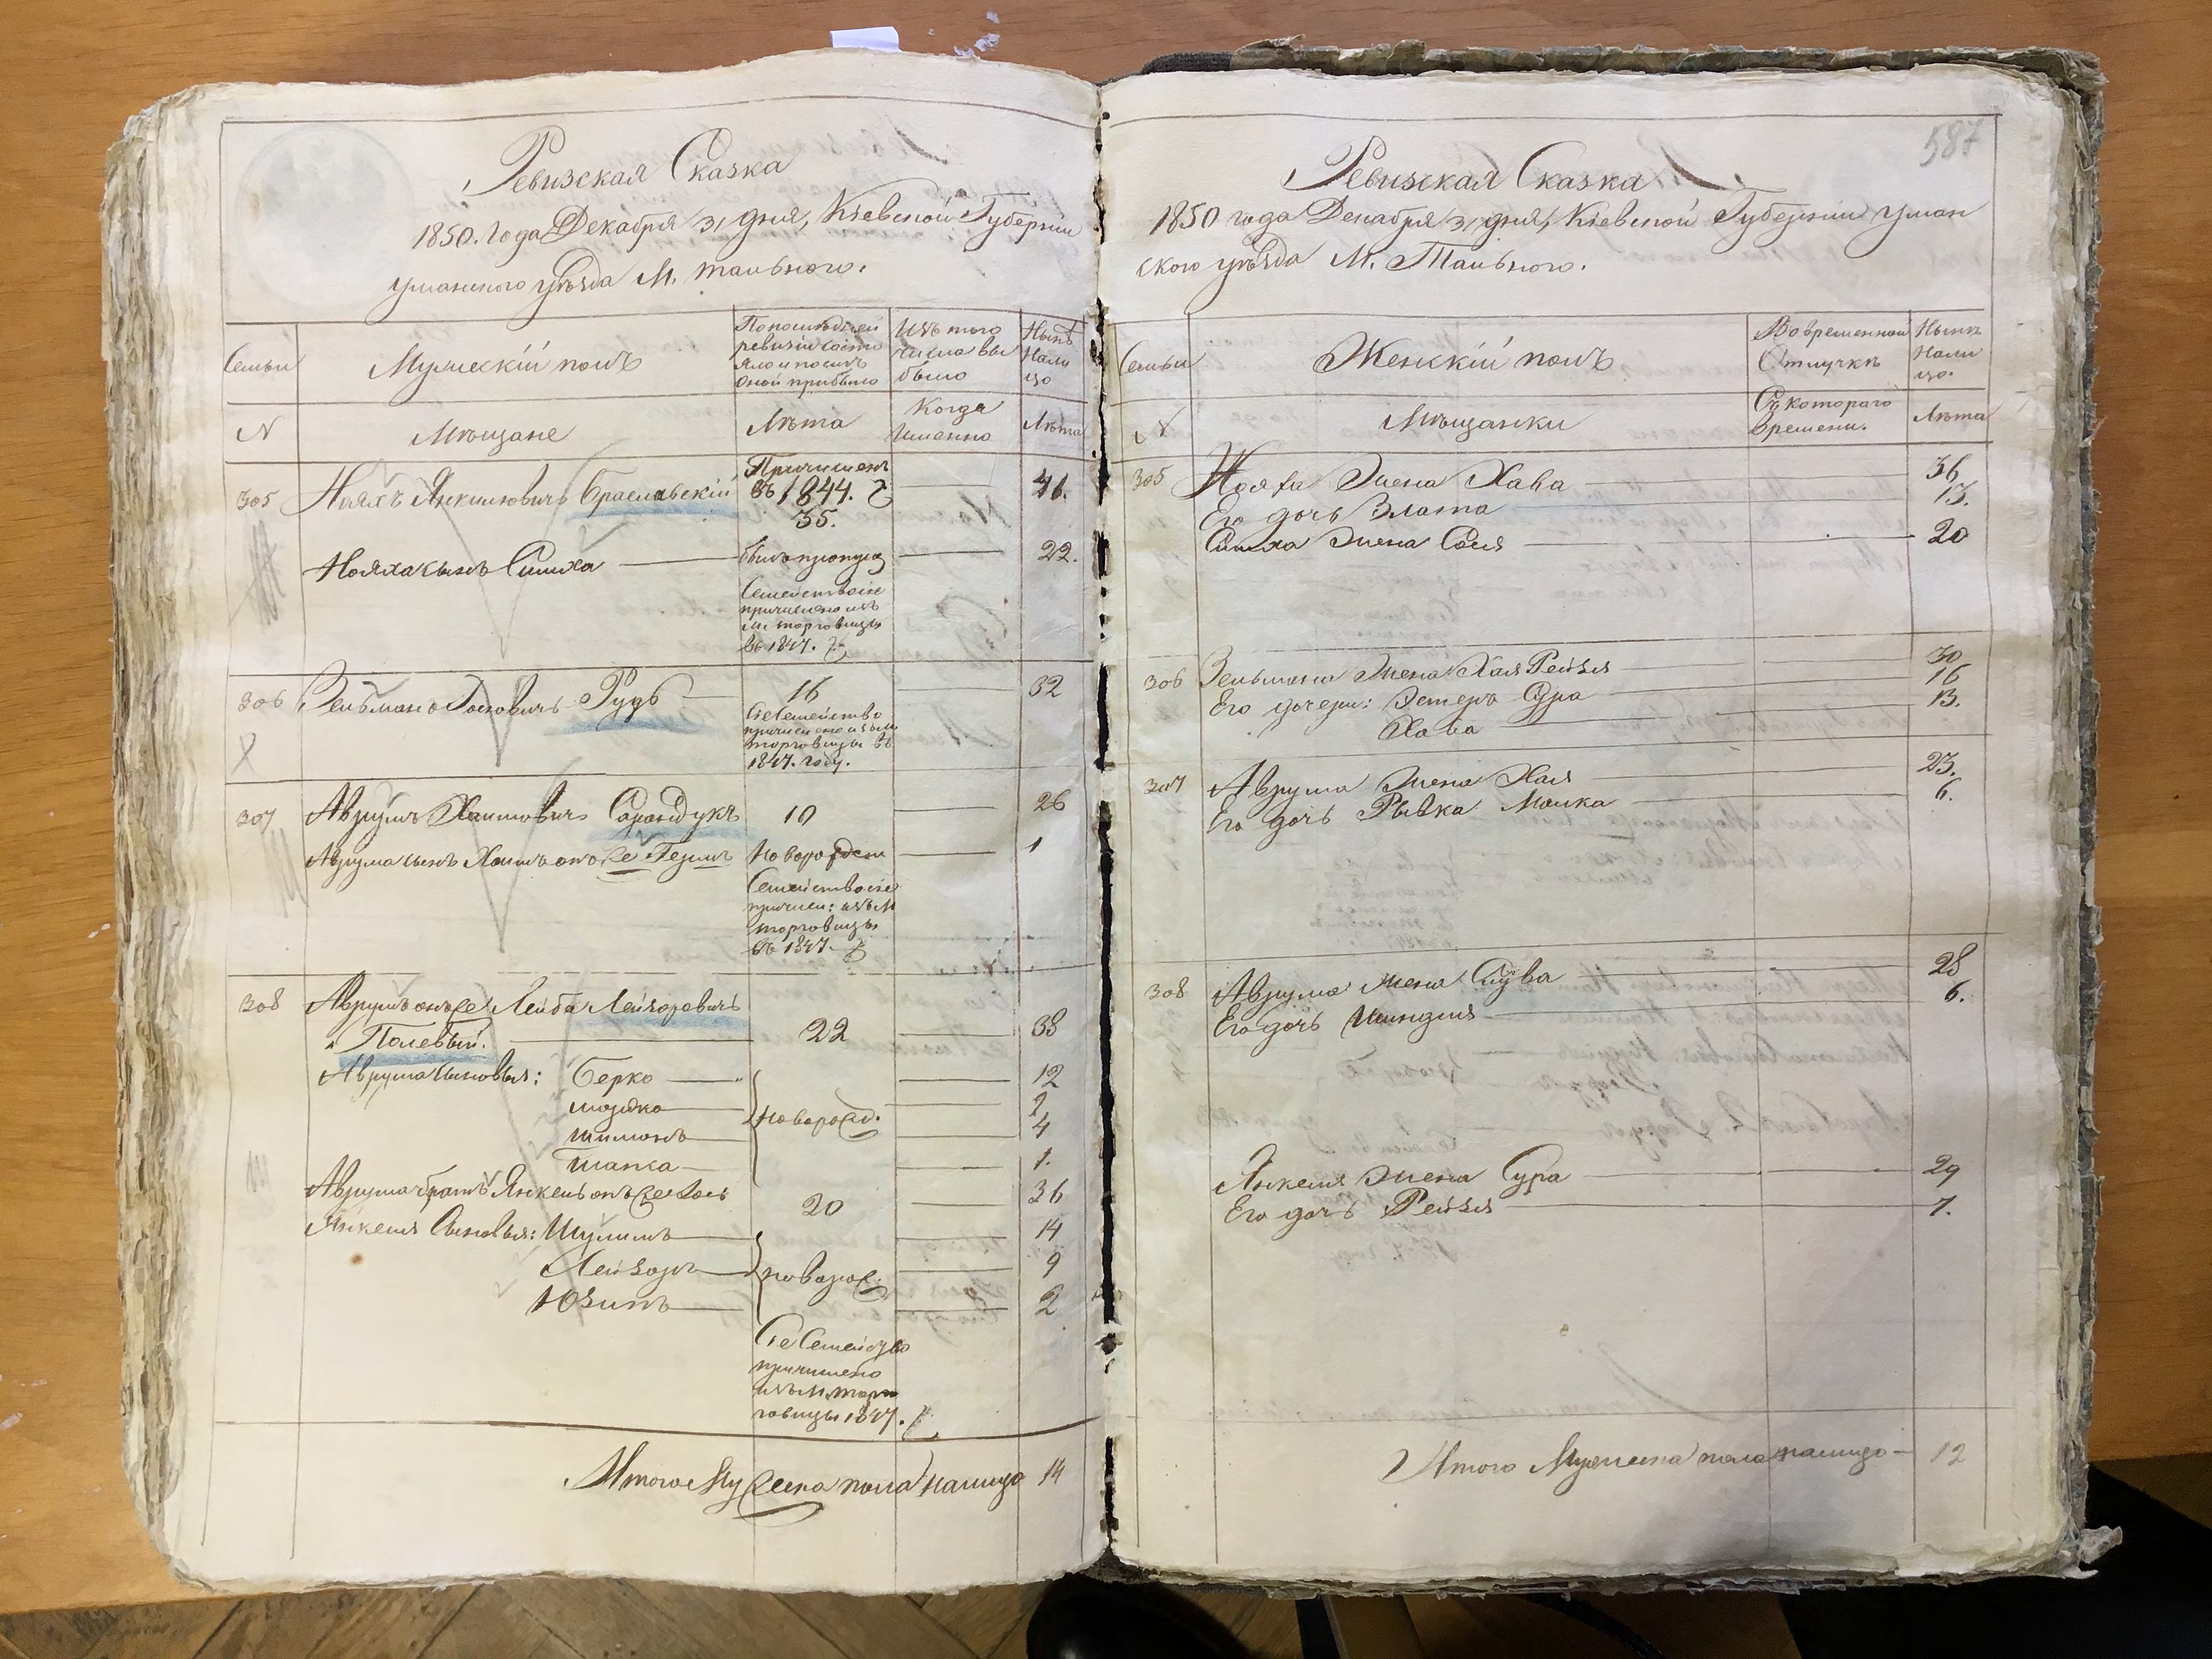 Ревизская Сказка
1850. года Декабря 31 дня, Кіевской Губерніи
Уманского уѣзда М. Тального.
Семьи
Мужескій полъ
По последней
ревизіи состо
яло и послѣ
оной прибыло
Изъ того
числа вы
было
Нынѣ
Нали
цо
N
Мѣщане
Лѣта
Когда
именно
Лѣта
305
Нояхъ Янкилювичъ Браславскій
Причисленъ
въ 1844.
35.
46.
Нояха сынъ Симха
былъ пропущ
22.
Семейство сіе
причислено изъ
м. торговицы
въ 1847.
306
Зельманъ Іосіовичъ Рудь
16
32
Сіе Семейство
причислено изъ м
торговицы въ
1847. году.
307
Аврумъ Хаимовичъ Сарандукъ
10
26
Аврума сынъ Хаимъ онъ же Гершъ
Новорожден
1
Семейство сіе
причисл: изъ м
торговицы
въ 1847.
308
Аврумъ онъ же Лейба Лейзоровичъ
Полевый.
22
38
Аврума сыновья:
Берко
12
Мошко
Шимонъ
новорожд.
4
1.
Аврума братъ Янкель онъ же
20
36
Янкеля Сыновья: Шулимъ
14
Лейзоръ
новорож.
9
Юзипъ
2
Сіе Семейство
причислено
изъ м. торго
говицы 1847.
Итого Мужеска пола налицо 14
587
Ревизская Сказка
1850 года Декабря 31 дня, Кіевской Губерніи Уман
ского уѣзда М. Тального.
Семьи
Женскій полъ
Во временной
Отлучкѣ
Нынѣ
Нали
цо.
N
Мѣщанки
Съ котораго
времени.
Лѣта
305
Нояха Жена Хава
36
Его дочь Злата
13.
Симха Жена Сося
20
306
Зельмана Жена Хая Рейзя
30
Его дочери: Эстеръ Сура
16
Хава
13.
307
Аврума Жена Хая
23.
Его дочь Рывка Малка
6.
308
Аврума Жена
28
Его дочь Шиндля
6.
Янкеля Жена Сура
29
Его дочь Рейзя
7.
Итого Мужеска пола налицо 12